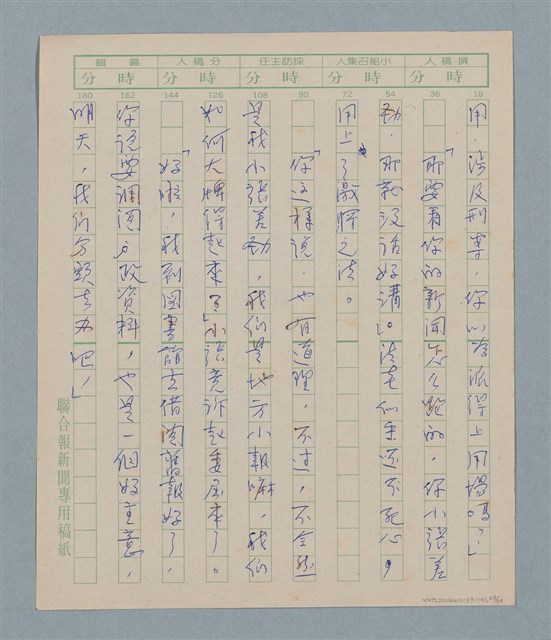 撰稿人 小組召集人 採訪主任 分稿人 編輯
時 分 時 分 時 分 時 分 時 分
18 36 54 72 90 108 126 144 162 180
用,涉及刑事,你以為派得上用場嗎?」
「那要看你的新聞怎么跑的,你小張差
勁,那就沒話好講。」法老似乎還不死心,
用上了激將之法。
「你這樣說,也有道理,不过,不全然
是我小張差勁,我们是地方小報嘛,我们
如何大牌得起來?」小張竟訴起委屈來了。
「好啦,我到圖書館去借閱舊報好了,
你說要調閱戶政資料,也是一個好主意,
明天,我们分頭去办吧!」
聯合報新聞專用稿紙